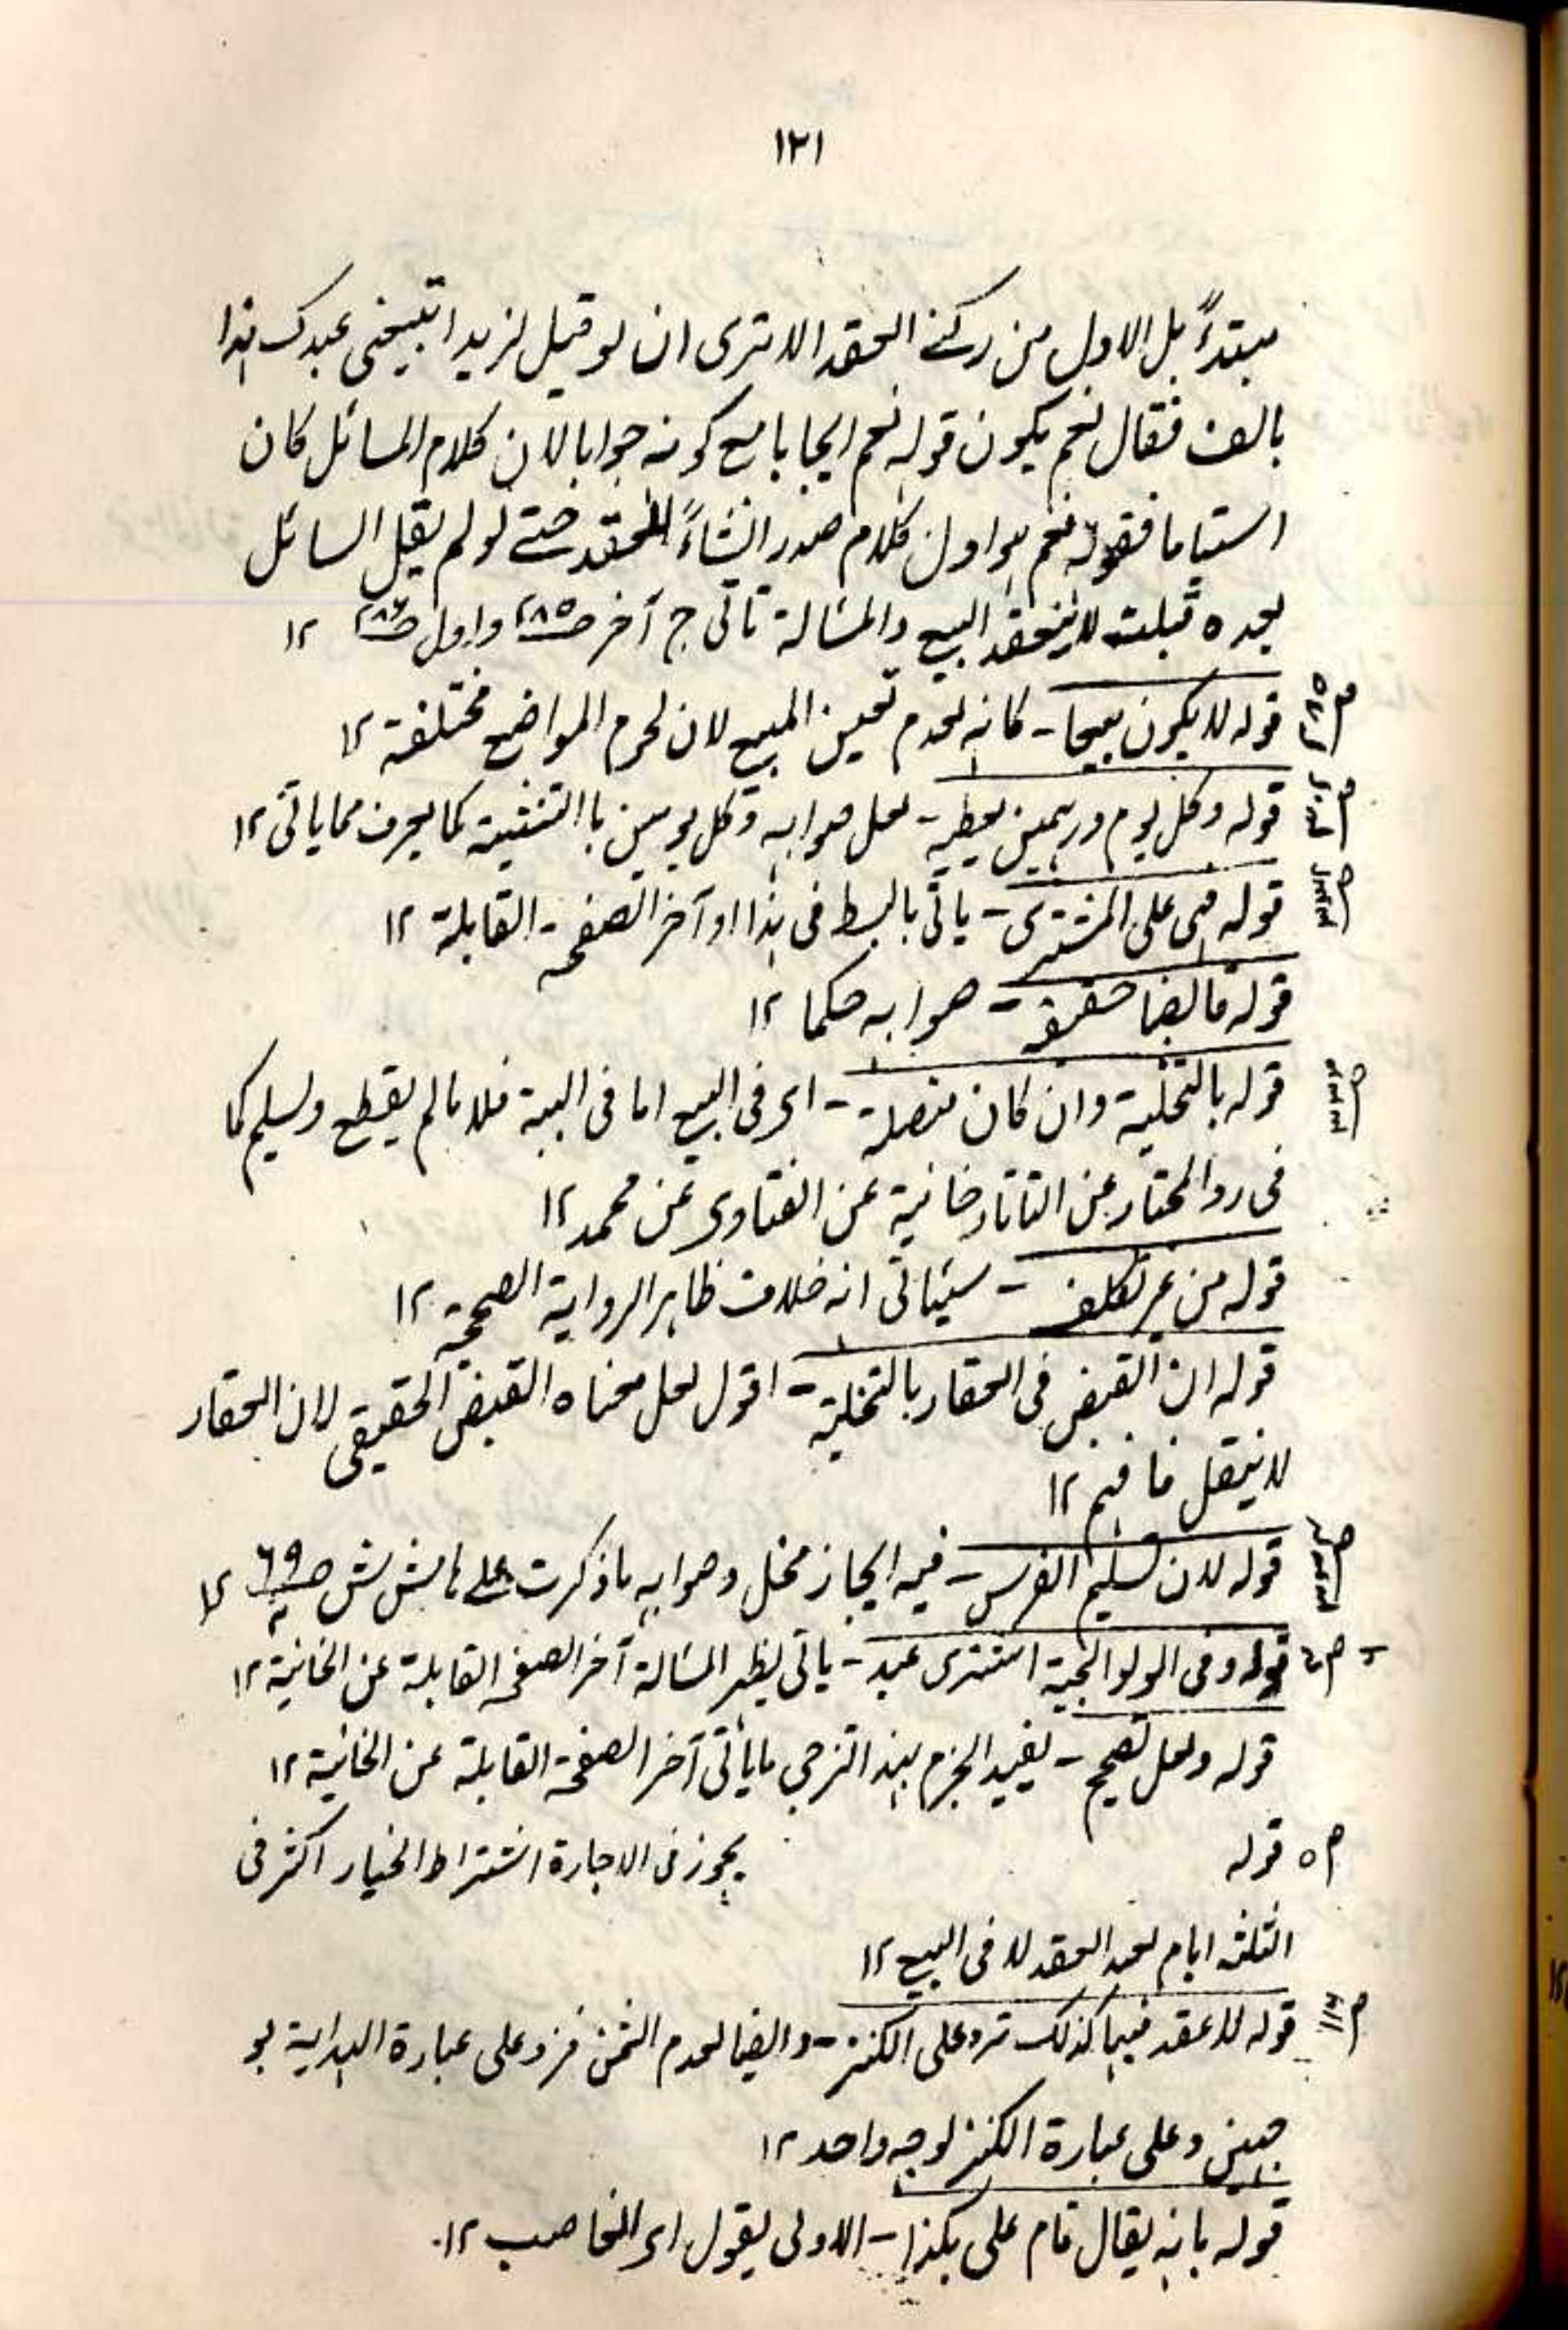 ١٢١
مبتدءً بل الاول من ركنے العقد الا ترى ان لو قيل لزيد اتبيعنى عبدك هذا
بالف فقال نعم يكون قوله نعم ايجابا مع كونه جوابا لان كلام السائل كان
استياما فقوله نعم هو اول كلام صدر انشاءً للعقد حتے لو لم يقل السائل
بعده قبلت لا ينعقد البيع والمسالة تاتى ج آخر ص٢٨٥ واول ص٢٨٦ ١٢
ص٢٨٥ قوله لا يكون بيعا - كانه لعدم تعين المبيع لان لحرم المواضع مختلفة ١٢
قوله وكل يوم درهمين يعطيه - لعل صوابه وكل يومين باالتثنية كما يعرف مما ياتى ١٢
قوله هى على المشترى - ياتى بالبسط فى هذا او آخر الصفحة القابلة ١٢
قوله قابضا حقيقة - صوابه حكما ١٢
قوله بالتخلية وان كان متصلة - اى فى البيع اما فى الهبة فلا مالم يقطع ويسلم كما
فى رد المحتار عن التاتارخانية عن الفتاوى عن محمد ١٢
قوله من غير تكلف - سيئاتى انه خلاف ظاهر الرواية الصحيحة ١٢
قوله ان القبض فى العقار بالتخلية - اقول لعل معناه القبض الحقيقى لان العقار
لا ينتقل فافهم ١٢
قوله لان تسليم الفرس - فيه ايجاز مخل وصوابه ماذكرت على هامش ش ص٦٩ ١٢
ص٤ قوله وفى الولوالجية اشترى عبد - ياتى نظير المسالة آخر الصفحة القابلة عن الخانية ١٢
قوله ولعل تصحيح - يفيد الجزم بهذا الترجى ماياتى آخر الصفحة القابلة عن الخانية ١٢
ص٥ قوله يجوز فى الاجارة اشتراط الخيار اكثر فى
الثلثة ايام لعبد العقد لا فى البيع ١٢
قوله لا عقد فيها كذلك ترد على الكنز - وايضا لعدم الثمن فرد على عبارة الهداية بو
جهين وعلى عبارة الكنز لوجه واحد ١٢
قوله بانه يقال قام على بكذا - الاولى يقول اى الغاصب ١٢